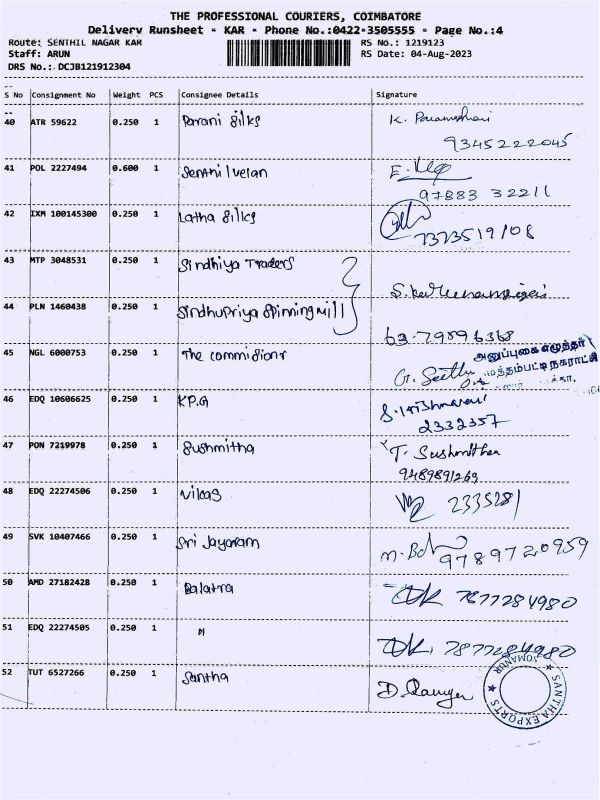 THE PROFESSIONAL COURIERS, COIMBATORE
Delivery Runsheet - KAR - Phone No.:0422-3505555 - Page No.:4
Route: SENTHIL NAGAR KAR RS No.: 1219123
Staff: ARUN RS Date: 04-Aug-2023
DRS No.: DCJB121912304
S No Consignment No Weight PCS Consignee Details Signature
40 ATR 59622 0.250 1 Barani Silks K. Parameshwari
9345222045
41 POL 2227494 0.600 1 Senthil velan
97883 32211
42 IXM 100145300 0.250 1 Latha Silks
7373519108
43 MTP 3048531 0.250 1 Sindhiya Traders
44 PLN 1460438 0.250 1 Sindhupriya Spinning mill
63-79896368
45 NGL 6000753 0.250 1 The commidionr G. Seethu
அனுப்புகை எழுத்தர்
46 EDQ 10606625 1 0.250 KP.G
2332357
47 PON 7219978 0.250 1 Sushmitha T. Sushmitha
9489891269
48 EDQ 22274506 0.250 1 Vikas 2335281
49 SVK 10407466 0.250 1 Sri Jayaram 9789720959
50 AMD 27182428 0.250 1 Balatra 7877284980
51 EDQ 22274505 0.250 1 " 7877284980
52 TUT 6527266 0.250 1 Santha
SANTHA EXPORTS
SOMANUR